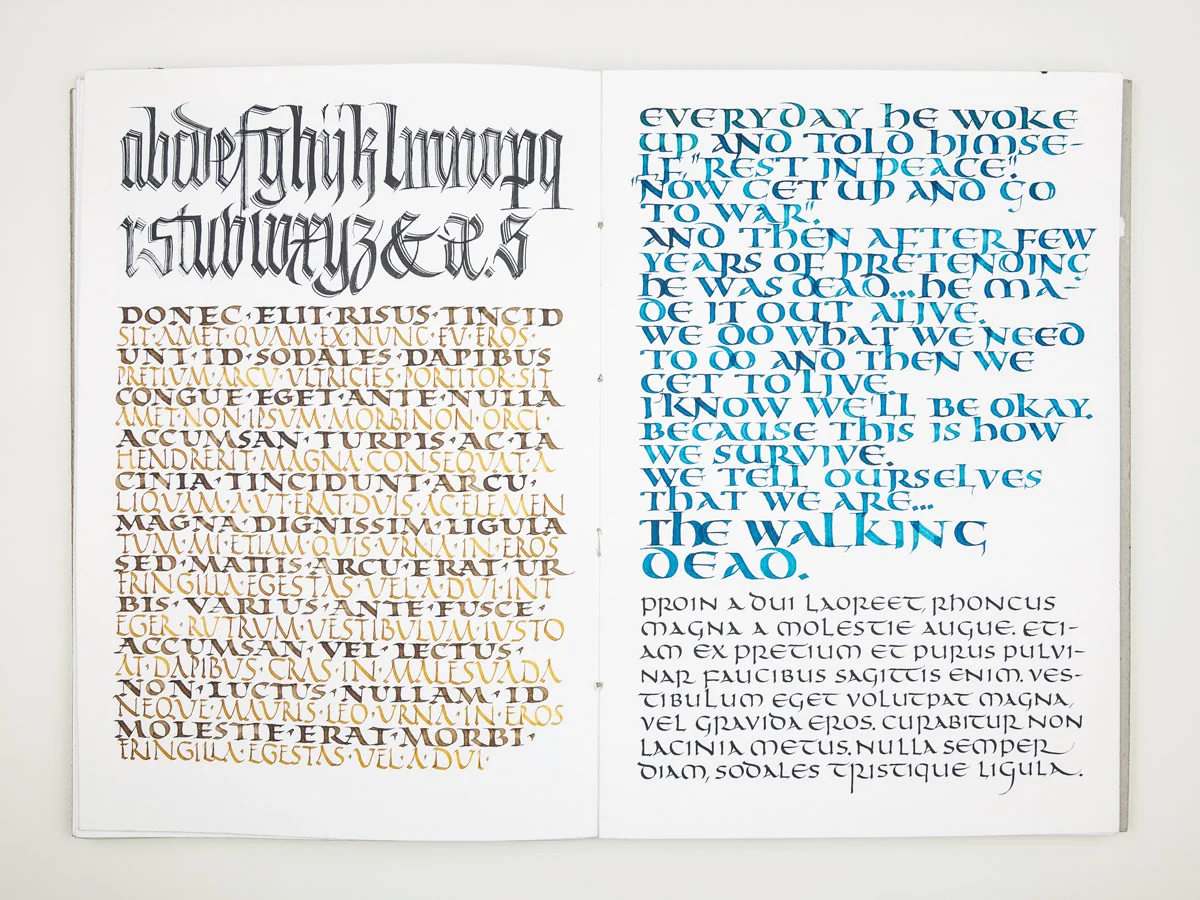 abcdefghijklmnopq
rstuvwxyz&æ.s
DONEC·ELIT·RISUS·TINCID
SIT·AMET·QUAM·EX·NUNC·EU·EROS·
UNT·ID·SODALES·DAPIBUS
PRETIUM·ARCU·ULTRICIES·PORTITOR·SIT
CONGUE·EGET·ANTE·NULLA
AMET·NON·IPSUM·MORBI·NON·ORCI·
ACCUMSAN·TURPIS·AC·IA
HENDRERIT·MAGNA·CONSEQUAT·A
CINIA·TINCIDUNT·ARCU·
LIQUAM·A·UT·ERAT·DUIS·AC·ELEMEN
MAGNA·DIGNISSIM·LIGULA
TUM·MI·ETIAM·QUIS·URNA·IN·EROS
SED·MATTIS·ARCU·ERAT·UR
FRINGILLA·EGESTAS·VEL·A·DUI·INT
BIS·VARIUS·ANTE·FUSCE·
EGER·RUTRUM·VESTIBULUM·IUSTO
ACCUMSAN·VEL·LECTUS·
AT·DAPIBUS·CRAS·IN·MALESUADA
NON·LUCTUS·NULLAM·ID
NEQUE·MAURIS·LEO·URNA·IN·EROS
MOLESTIE·ERAT·MORBI·
FRINGILLA·EGESTAS·VEL·A·DUI·
EVERYDAY HE WOKE
UP AND TOLD HIMSE-
LF "REST IN PEACE".
"NOW GET UP AND GO
TO WAR".
AND THEN AFTER FEW
YEARS OF PRETENDING
HE WAS DEAD...HE MA-
DE IT OUT ALIVE.
WE DO WHAT WE NEED
TO DO AND THEN WE
GET TO LIVE.
I KNOW WE'LL BE OKAY.
BECAUSE THIS IS HOW
WE SURVIVE.
WE TELL OURSELVES
THAT WE ARE...
THE WALKING
DEAD.
PROIN A DUI LAOREET, RHONCUS
MAGNA A MOLESTIE AUGUE. ETI-
AM EX PRETIUM ET PURUS PULVI-
NAR FAUCIBUS SAGITTIS ENIM, VES-
TIBULUM EGET VOLUTPAT MAGNA,
VEL GRAVIDA EROS. CURABITUR NON
LACINIA METUS. NULLA SEMPER
DIAM, SODALES TRISTIQUE LIGULA.